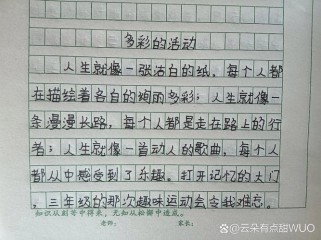 多彩的活动
人生就像一张洁白的纸，每个人都
在描绘着各自的绚丽多彩；人生就像一
条漫漫长路，每个人都是走在路上的行
者；人生就像一首动人的歌曲，每个人
都从中感受到了乐趣。打开记忆的大门
，三年级的那次趣味运动会支我难忘。
知识从刻苦中得来，无知从松懈中造成。
老师： 家长：
@云朵有点甜WUO